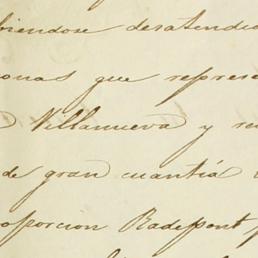 biendose desatendid
onas que represe
Villanueva y re
de gran cuantía
oporcion Radepont